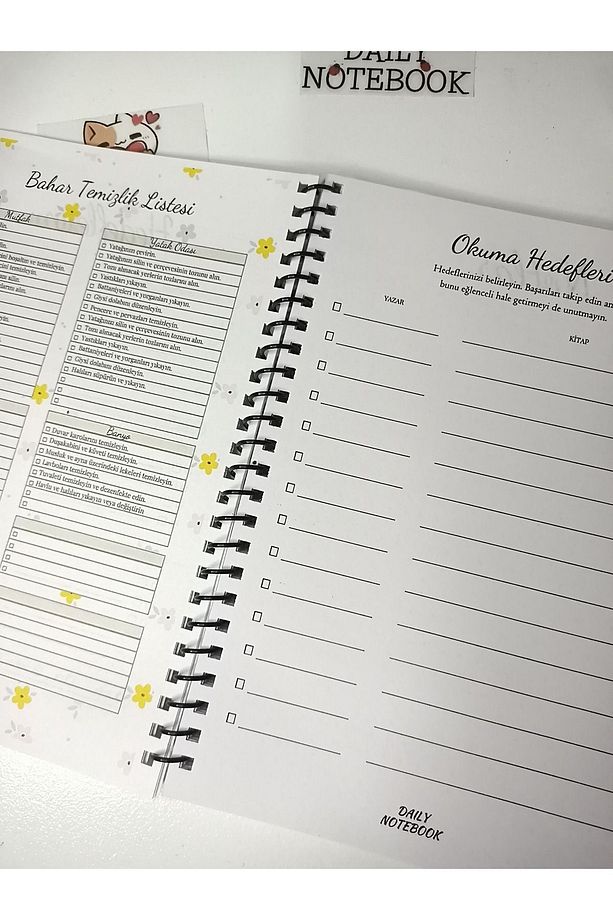 DAILY
NOTEBOOK
Bahar Temizlik Listesi
Mutfak
boşaltın ve temizleyin.
temizleyin.
silin.
tozlarını alın.
yıkayın.
temizleyin.
Yatak Odası
Yatağınızı çevirin.
Yatağınızın silin ve çerçevesinin tozunu alın.
Tozu alınacak yerlerin tozlarını alın.
Yastıkları yıkayın.
Battaniyeleri ve yorganları yıkayın.
Giysi dolabını düzenleyin.
Pencere ve pervazları temizleyin.
Yatağınızın silin ve çerçevesinin tozunu alın.
Tozu alınacak yerlerin tozlarını alın.
Yastıkları yıkayın.
Battaniyeleri ve yorganları yıkayın.
Giysi dolabını düzenleyin.
Halıları süpürün ve yıkayın.
Banyo
Duvar karolarını temizleyin.
Duşakabini ve küveti temizleyin.
Musluk ve ayna üzerindeki lekeleri temizleyin.
Lavboları temizleyin.
Tuvaleti temizleyin ve dezenfekte edin.
Havlu ve halıları yıkayın veya değiştirin
Okuma Hedefleri
Hedeflerinizi belirleyin. Başarıları takip edin
bunu eğlenceli hale getirmeyi de unutmayın.
YAZAR
KİTAP
DAILY
NOTEBOOK